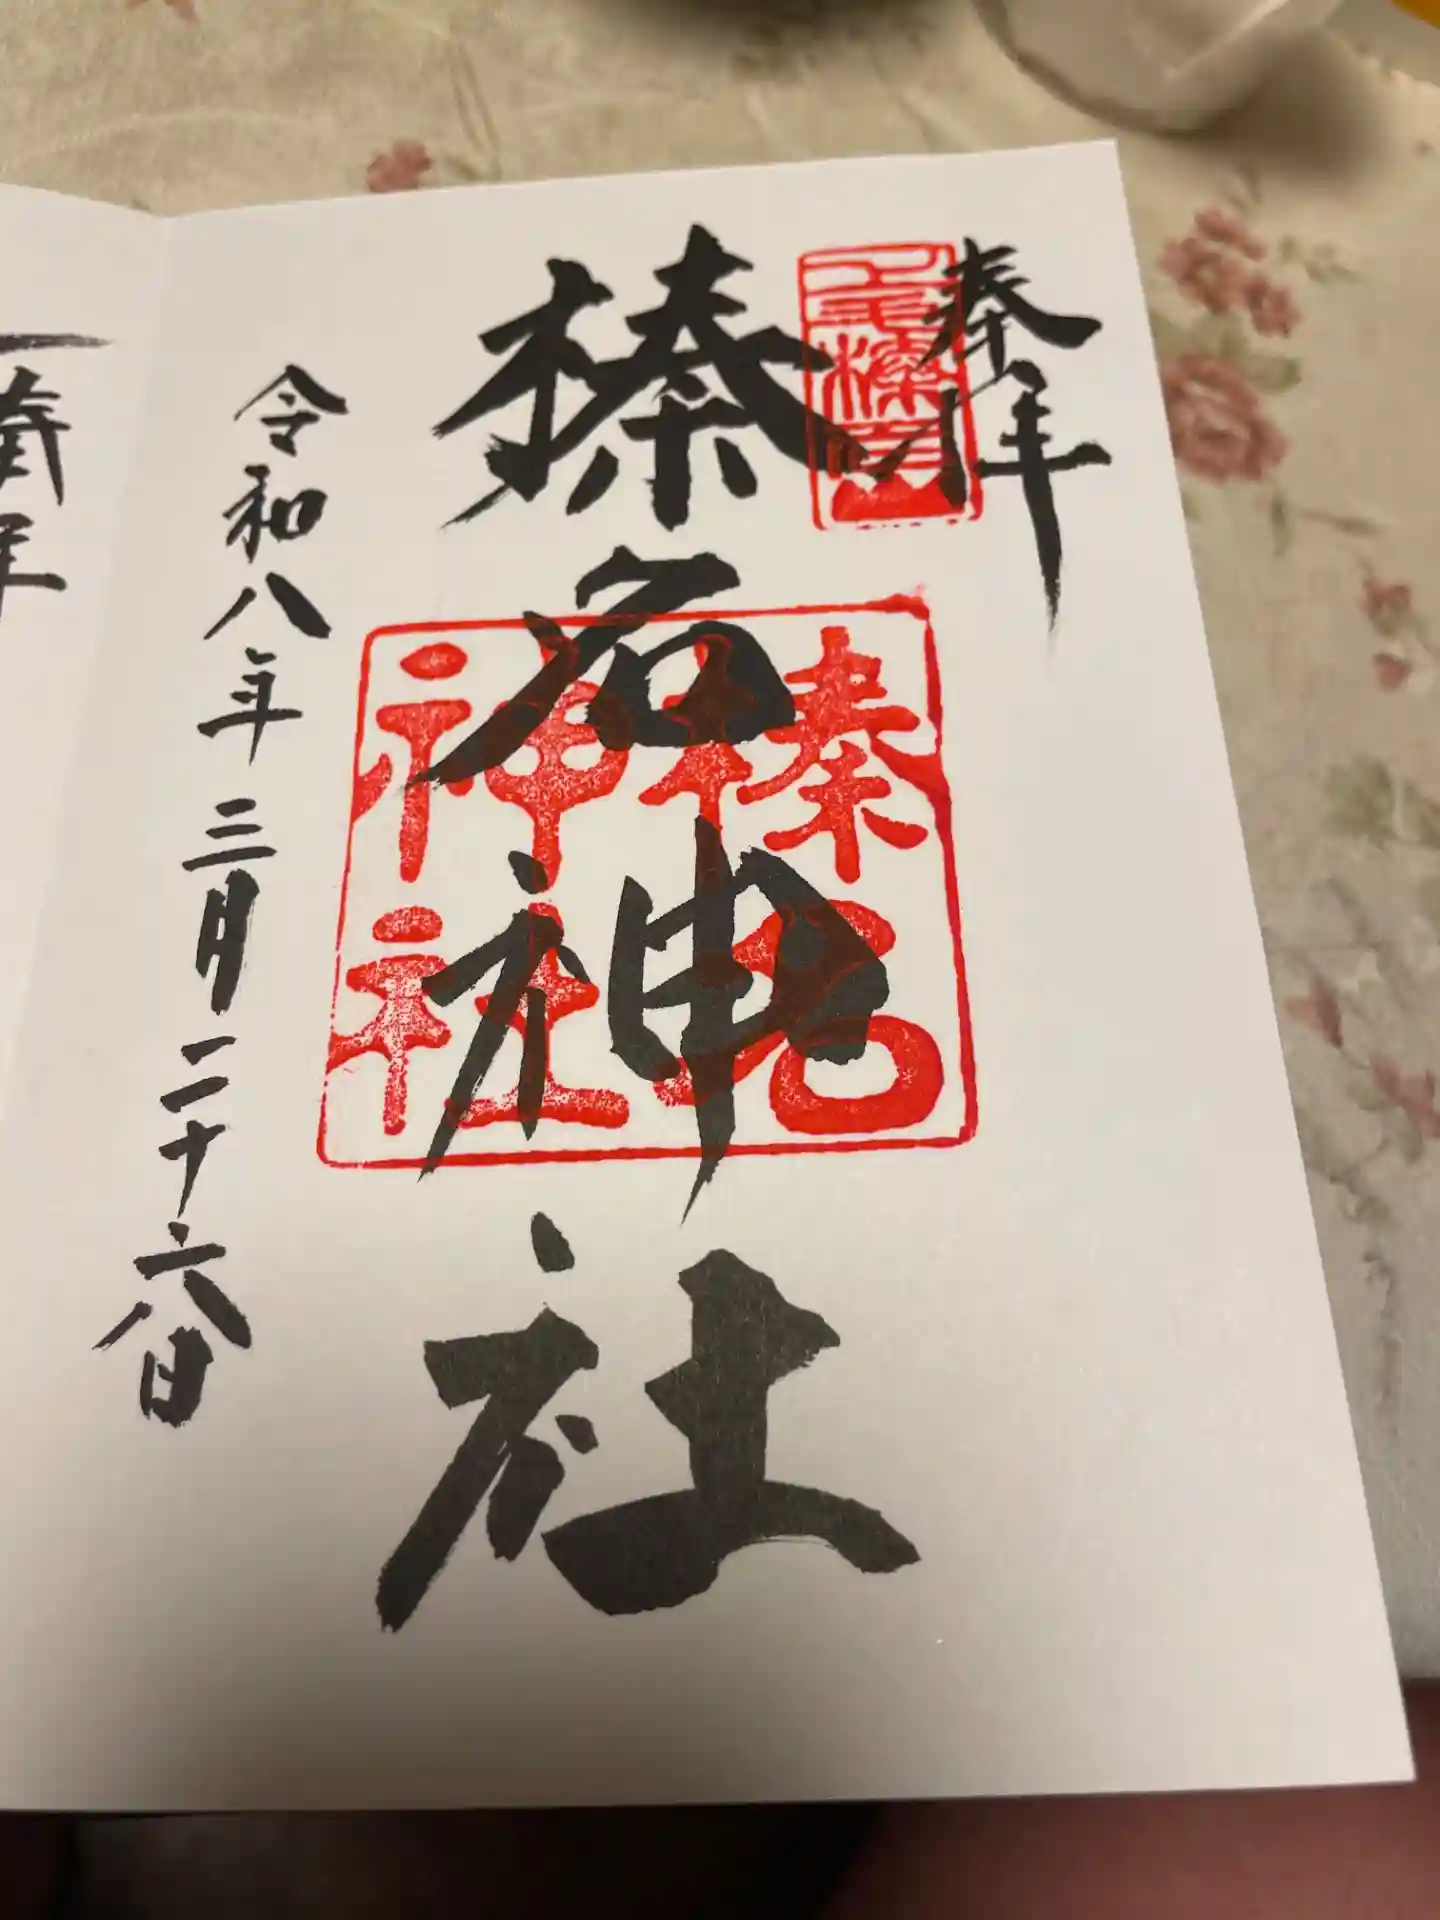 奉拝
上毛榛名山
榛名神社
榛名
神社
令和八年三月二十六日
奉拝